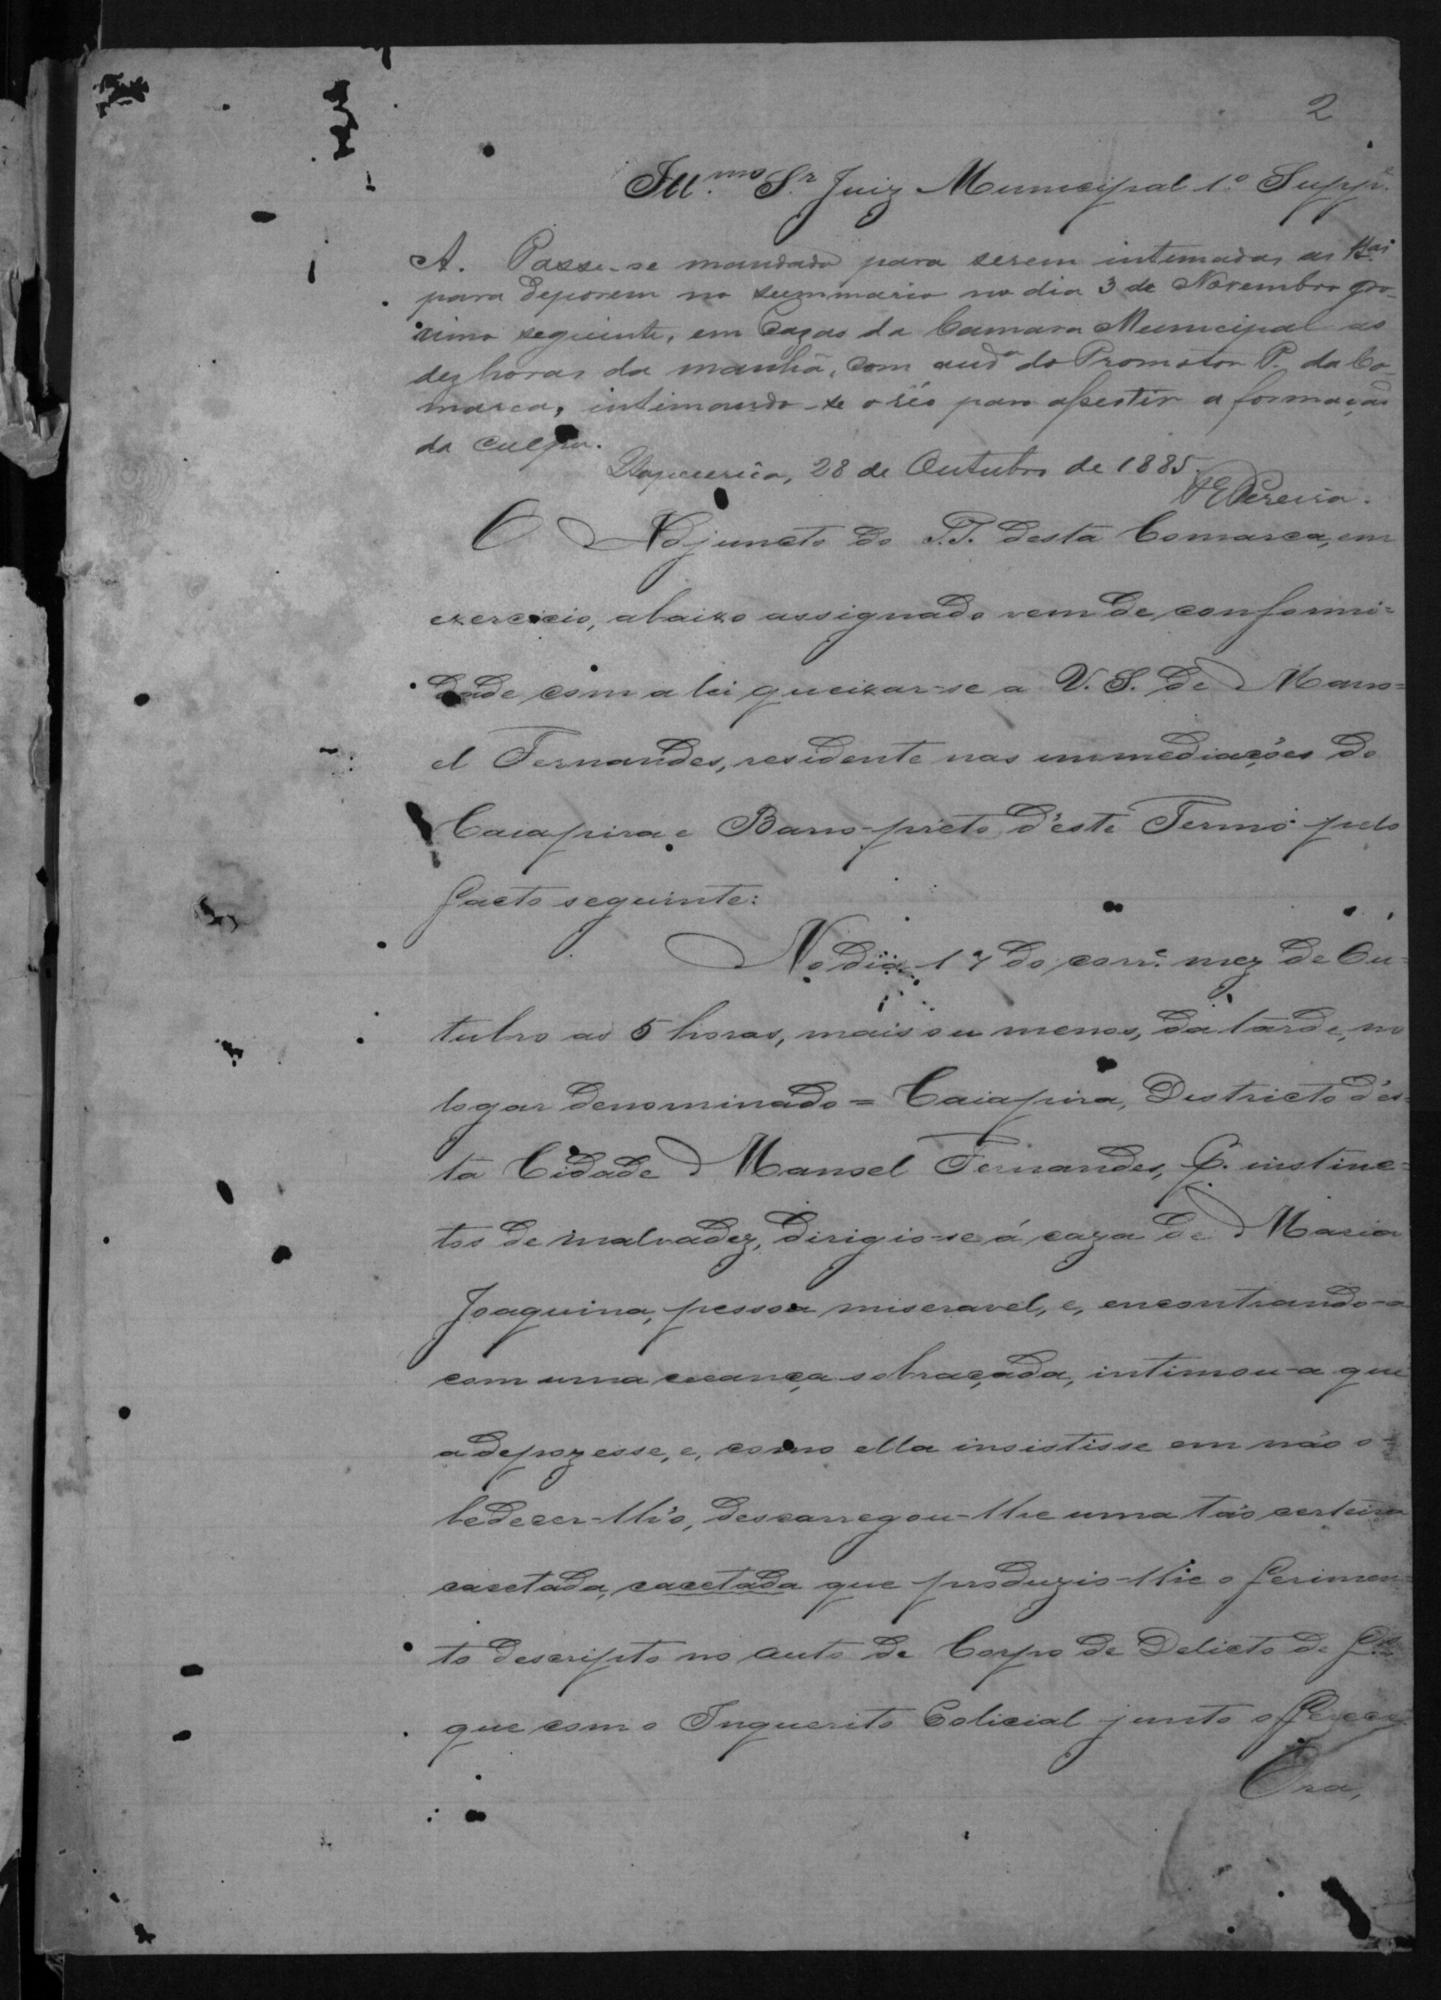 2
Ill.mo Sr. Juiz Municipal 1º Suppe.
A. Passe-se mandado para serem intimadas as ttas
para deporem no summario no dia 3 de Novembro pro-
ximo seguinte, em Cazas da Camara Municipal as
dez horas da manhã, com audª do Promotor P. da Co-
marca, intimando-se o réo para assestir a formação
da culpa.
Itapecerica, 28 de Outubro de 1885.
Pereira.
O Adjuncto do P.P. desta Comarca, em
exercicio, abaixo assignado vem de conformi=
dade com a lei queixar-se a V. S. de Mano=
el Fernandes, residente nas immediações do
Caiapira e Barro-preto d'este Termo pelo
facto seguinte:
No dia 17 do corre. mez de Ou-
tubro as 5 horas, mais ou menos, da tarde, no
logar denominado = Caiapira, Districto d'es-
ta Cidade Manoel Fernandes, p. instinc=
tos de malvadez, dirigio-se á caza de Maria
Joaquina, pessoa miseravel, e, encontrando-a
com uma creança sobraçada, intimou-a que
a depozesse, e, como ella insistisse em não o-
bedecer-lh'o, descarregou-lhe uma tão certeira
cacetada, cacetada que produzio-lhe o ferimen=
to descripto no auto de Corpo de Delicto de
que com o Inquerito Policial junto offerece
Ora,